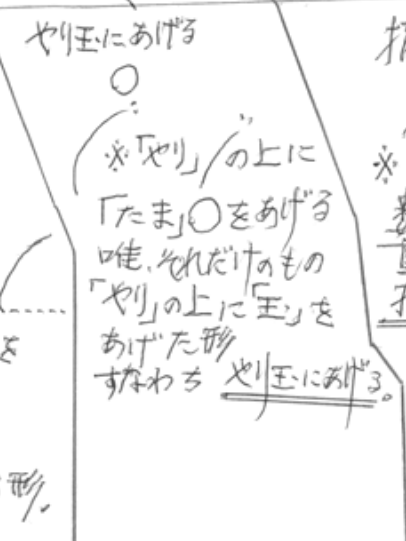 やり玉にあげる
※「やり」の上に
「たま」○をあげる
唯、それだけのもの
「やり」の上に「玉」を
あげた形
すなわち やり玉にあげる。
を
形。
※